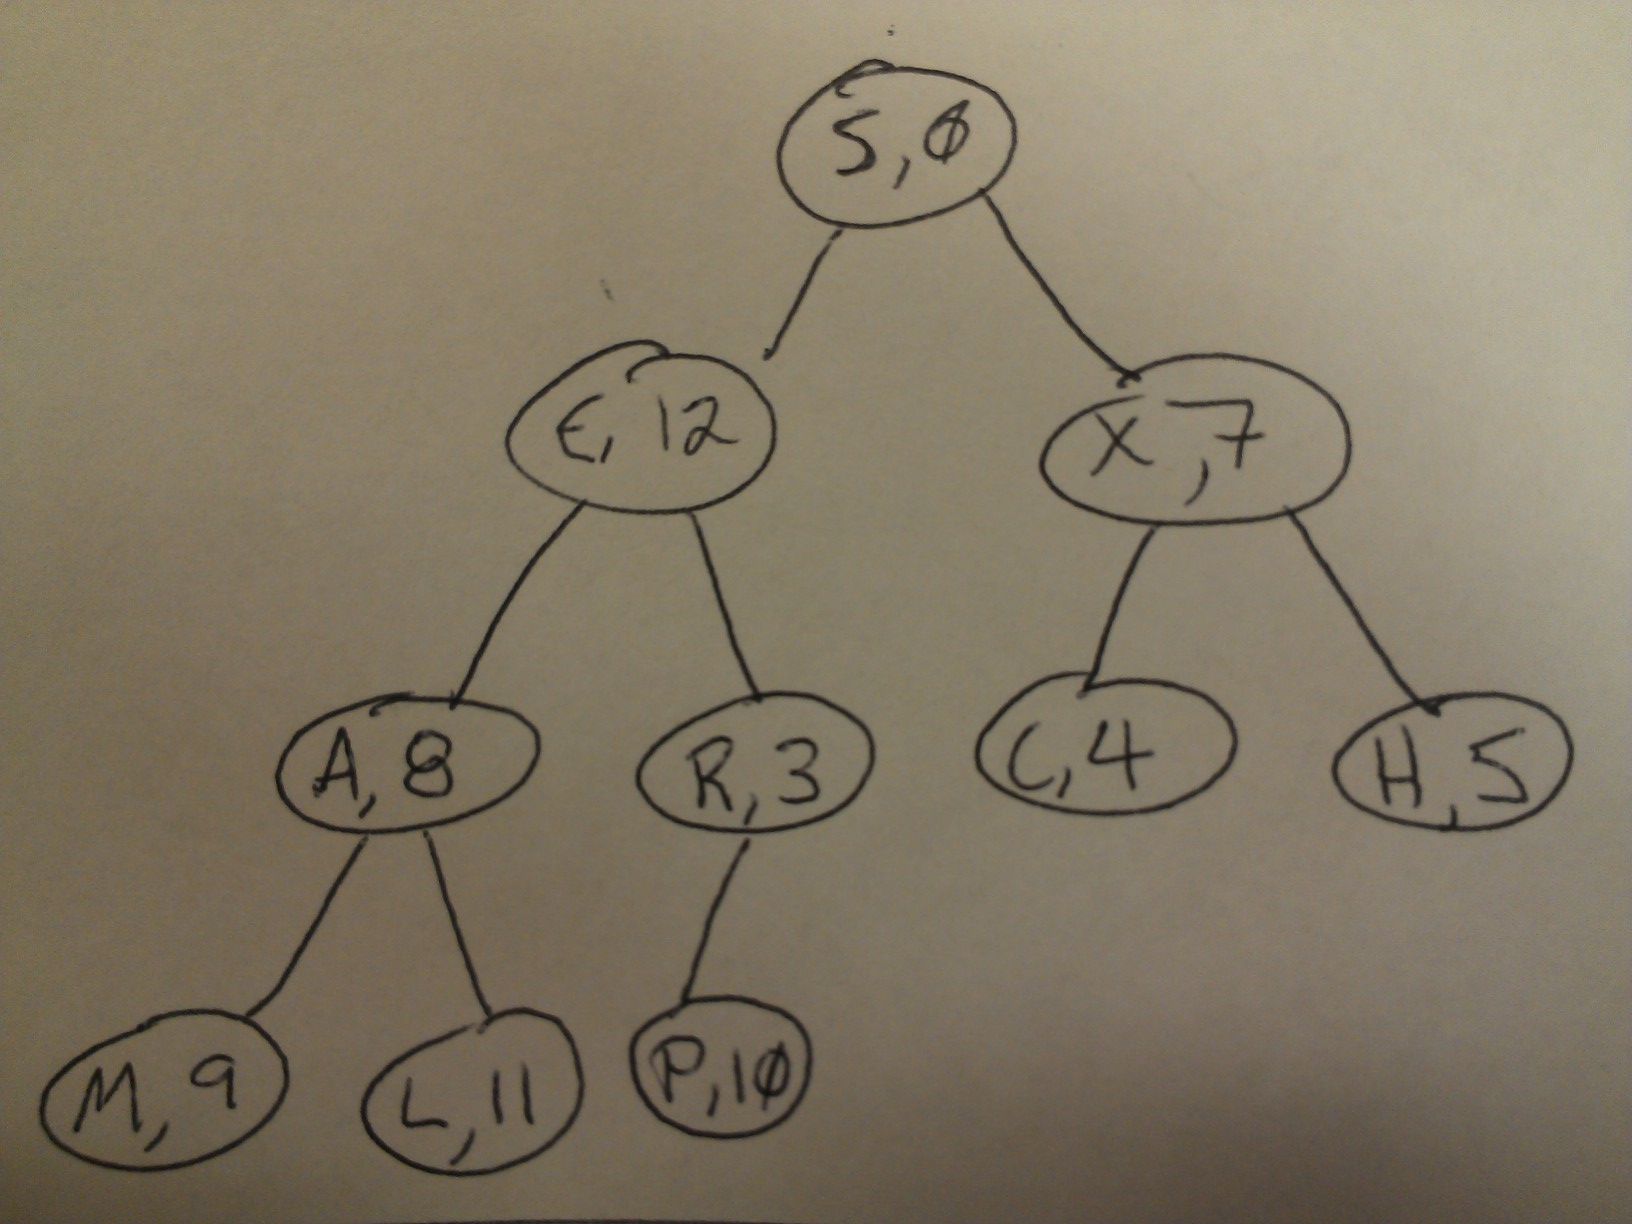 S,0
E,12 X,7
A,8 R,3 C,4 H,5
M,9 L,11 P,10